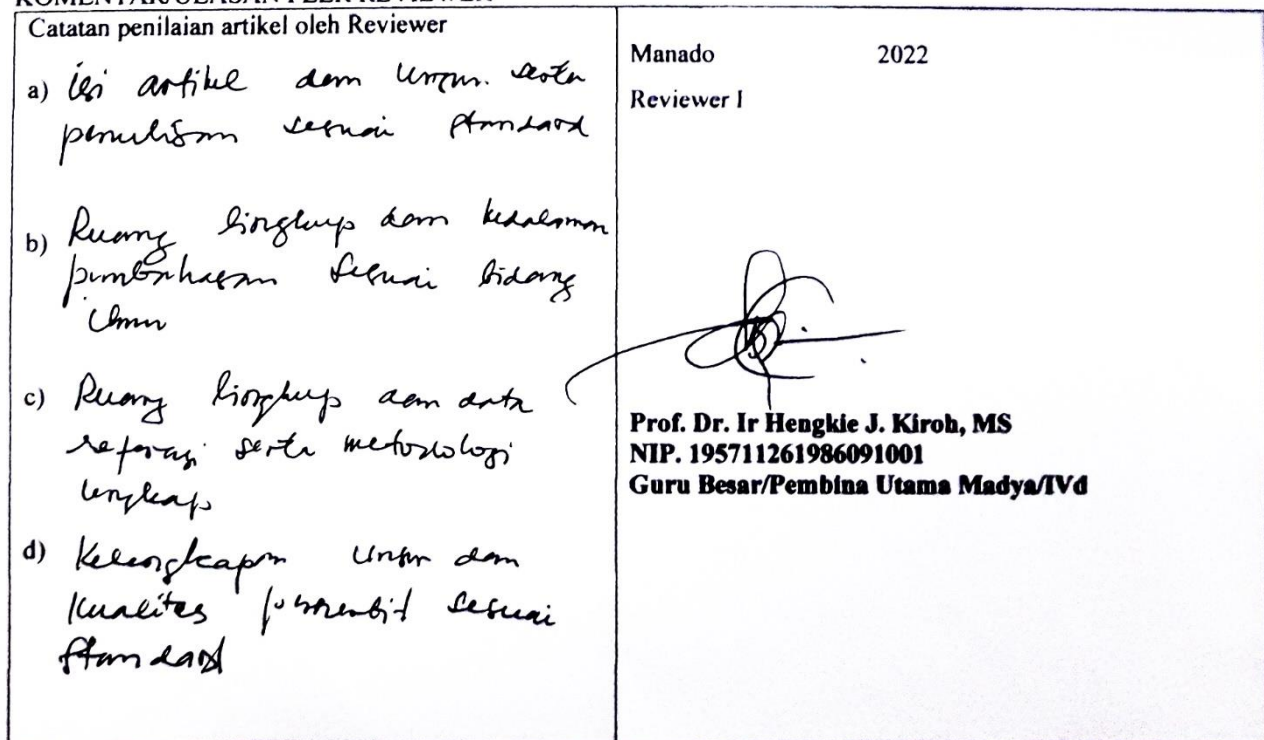 KOMENTAR/ULASAN PEER REVIEWER
Catatan penilaian artikel oleh Reviewer
a) isi artikel dan unsur serta
penulisan sesuai standard
b) Ruang lingkup dan kedalaman
pembahasan sesuai bidang
ilmu
c) Ruang lingkup dan data
serta metodologi
lengkap
d) Kelengkapan unsur dan
kualitas penerbit sesuai
standard
Manado 2022
Reviewer I
Prof. Dr. Ir Hengkie J. Kiroh, MS
NIP. 195711261986091001
Guru Besar/Pembina Utama Madya/IVd